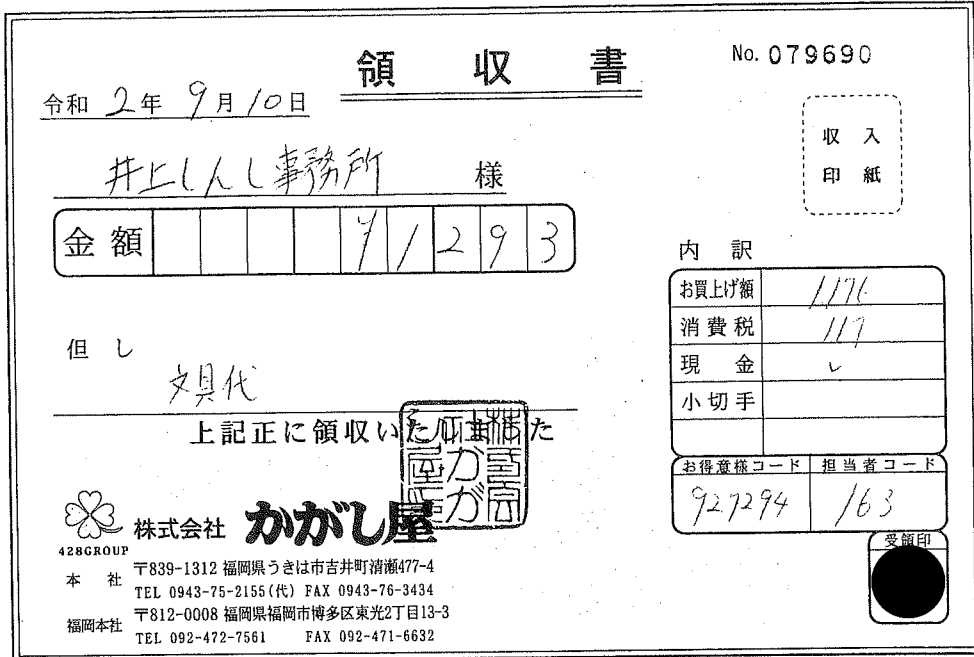 領収書
No. 079690
令和 2年 9月10日
収入
印紙
井上しんし事務所 様
金額 ¥1293
内訳
お買上げ額 1176
消費税 117
現金 レ
小切手
但し
文具代
上記正に領収いたしました
お得意様コード 担当者コード
927294 163
428GROUP
株式会社 かがし屋
受領印
本社 〒839-1312 福岡県うきは市吉井町清瀬477-4
TEL 0943-75-2155(代) FAX 0943-76-3434
福岡本社 〒812-0008 福岡県福岡市博多区東光2丁目13-3
TEL 092-472-7561 FAX 092-471-6632